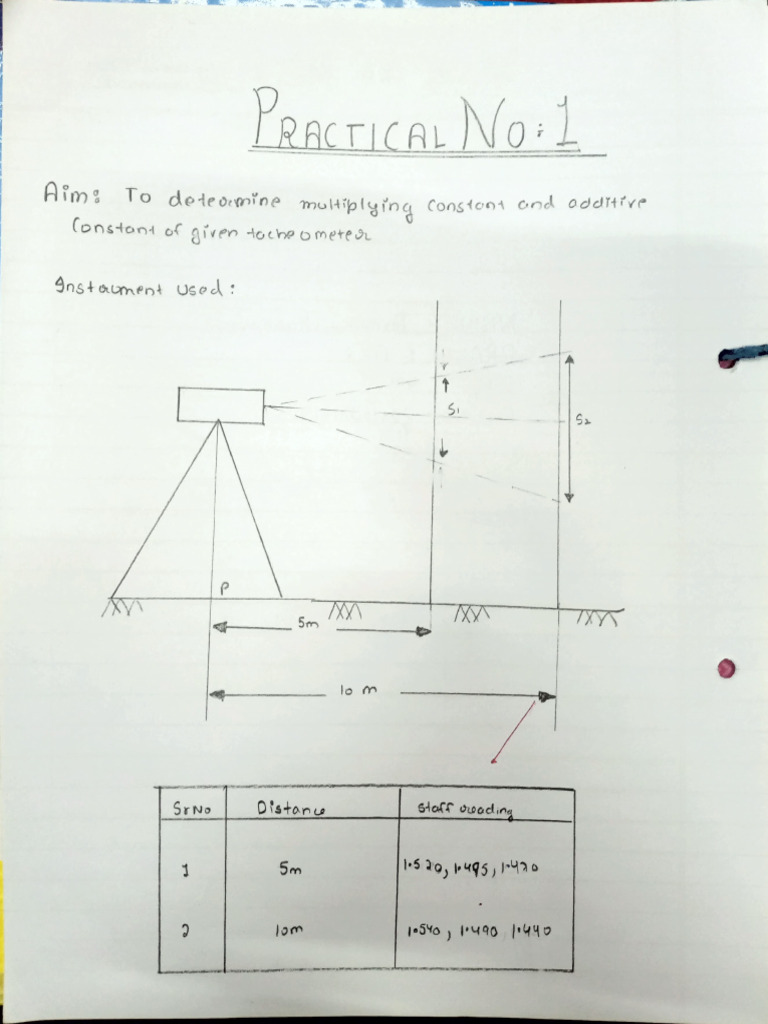 PRACTICAL NO: 1
Aim: To determine multiplying constant and additive
Constant of given tacheometer
Instrument used:
S1
S2
P
5m
10 m
Sr No Distance Staff reading
1 5m 1.520, 1.495, 1.470
2 10m 1.540, 1.490 1.440